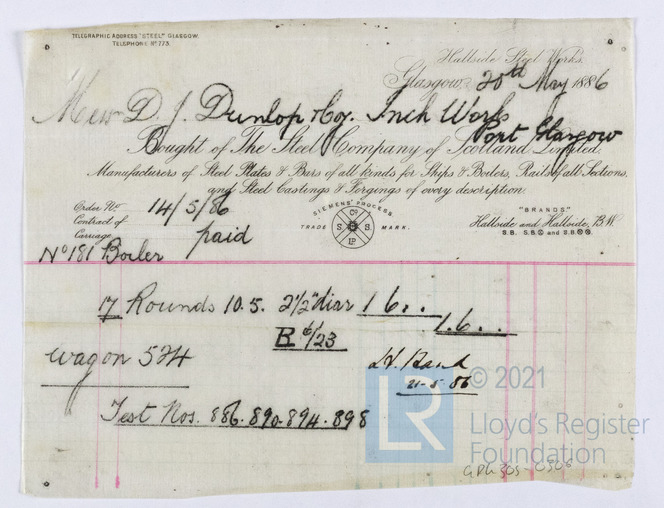 TELEGRAPHIC ADDRESS "STEEL" GLASGOW.
TELEPHONE Nº 773.
Hallside Steel Works.
Glasgow, 20th May 1886
Messrs D. J. Dunlop & Coy. Inch Works
Port Glasgow
Bought of The Steel Company of Scotland Limited.
Manufacturers of Steel Plates & Bars of all kinds for Ships & Boilers, Rails of all Sections,
and Steel Castings & Forgings of every description.
Order No
Contract of 14/5/86
Carriage paid
SIEMENS' PROCESS
TRADE MARK.
Cº
S S
LD
"BRANDS"
Hallside and Hallside, B.W.
S.B. S.B. and S.B.
Nº 181 Boiler
17 Rounds 10.5. 2½" diar 1 6 . .
1. 6 . .
B 6/23
Wagon 524
21-5-86
Test Nos. 886. 890. 894. 898
LR
© 2021
Lloyd's Register
Foundation